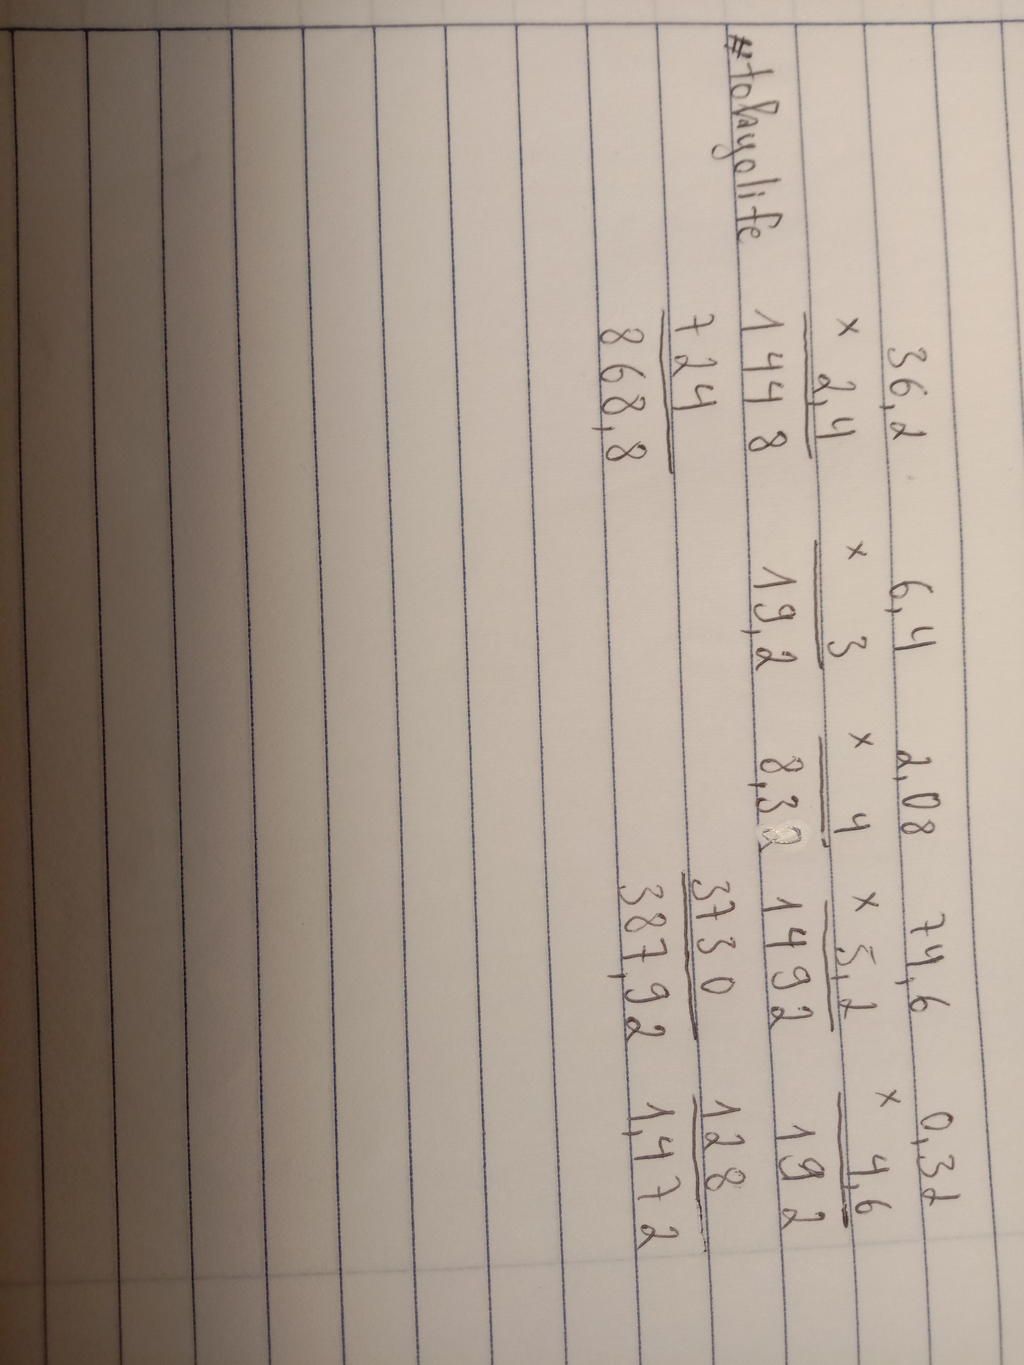 36,2 6,4 2,08 74,6 0,32
× 2,4 × 3 × 4 × 5,2 × 4,6
#tobayolife 1448 19,2 8,32 1492 192
724 3730 128
868,8 387,92 1,472